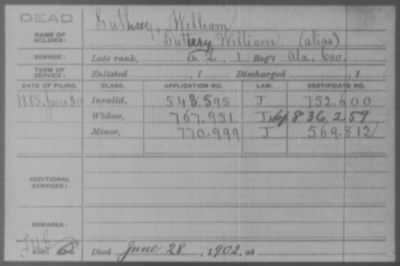 DEAD
NAME OF SOLDIER: Guthrey, William
Guttery William (alias)
SERVICE: Late rank, Co. L, 1 Reg't Ala. Cav.
TERM OF SERVICE: Enlisted , 1 Discharged , 1
DATE OF FILING. CLASS. APPLICATION NO. LAW. CERTIFICATE NO.
1885, June 30 Invalid, 548.595 J 752.600
Widow, 767.951 J 836.259
Minor, 770.999 J 569.812
ADDITIONAL SERVICES:
REMARKS:
Died June 28, 1902, at